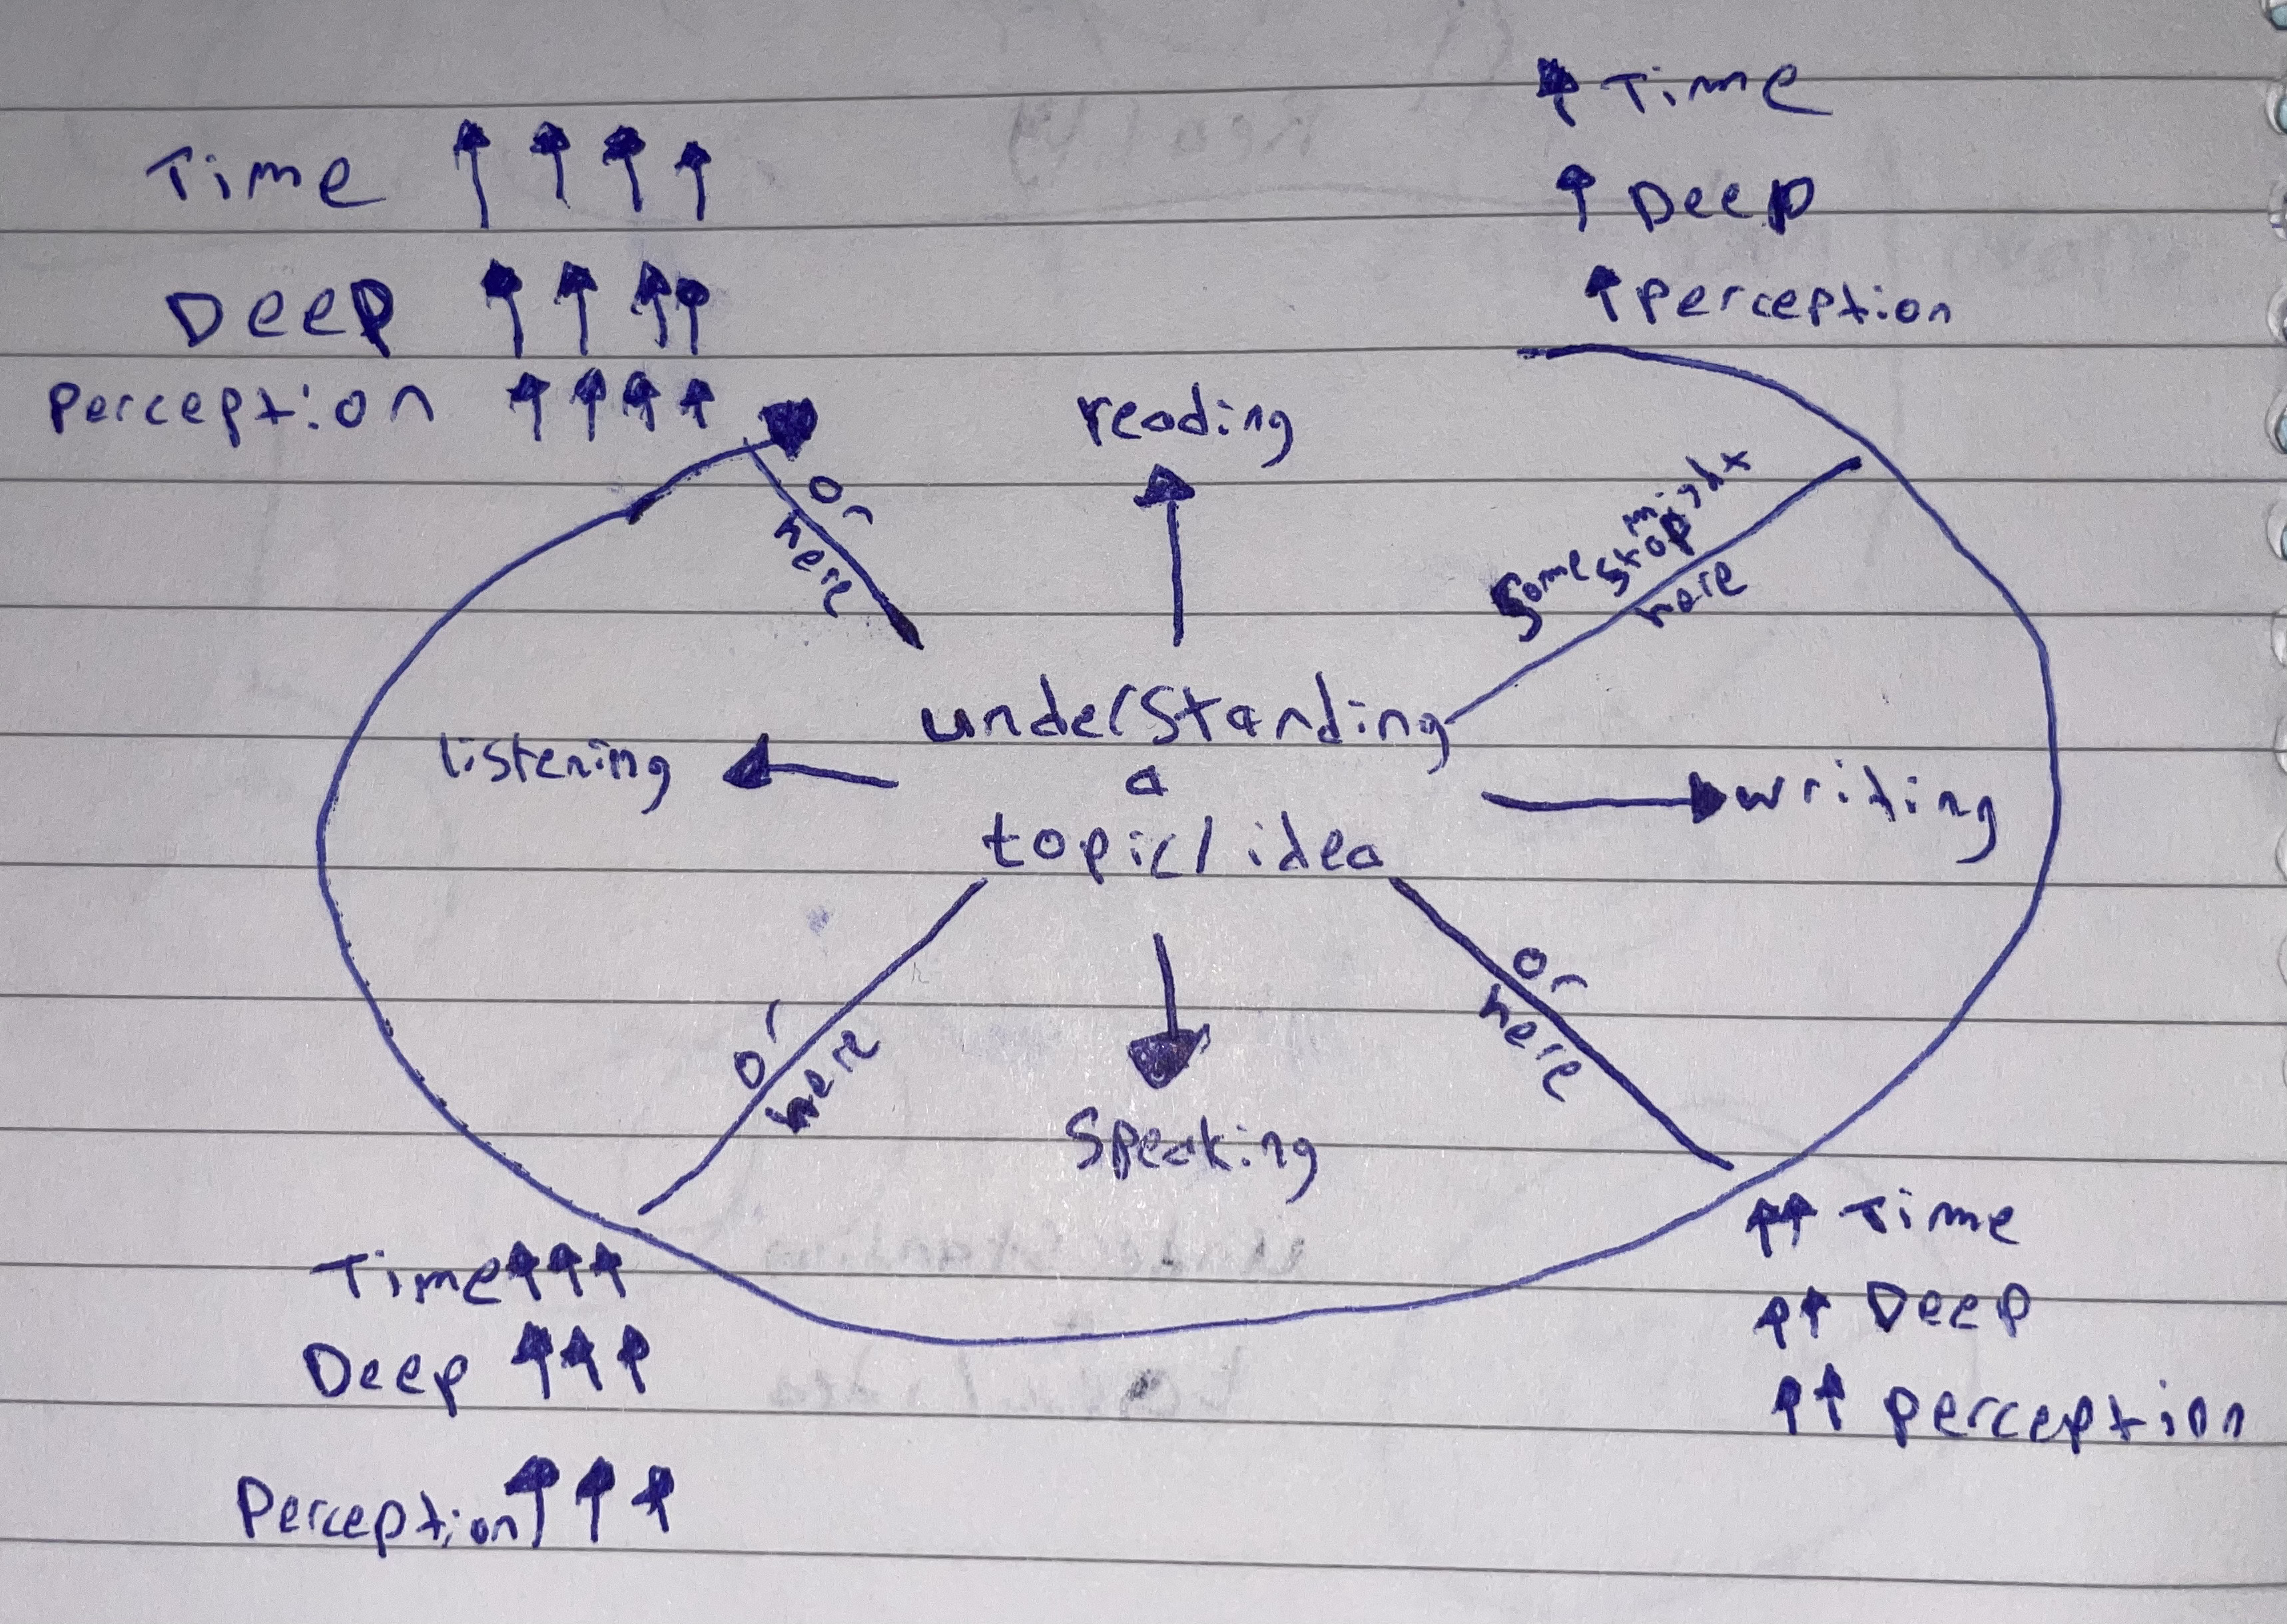 Time ↑ ↑ ↑ ↑
Deep ↑ ↑ ↑ ↑
Perception ↑ ↑ ↑ ↑
↑ Time
↑ Deep
↑ Perception
reading
or
here
some might
stop
here
understanding
a
topic/idea
listening
writing
or
here
or
here
Speaking
Time ↑↑↑
Deep ↑↑↑
Perception ↑↑↑
↑↑ Time
↑↑ Deep
↑↑ Perception